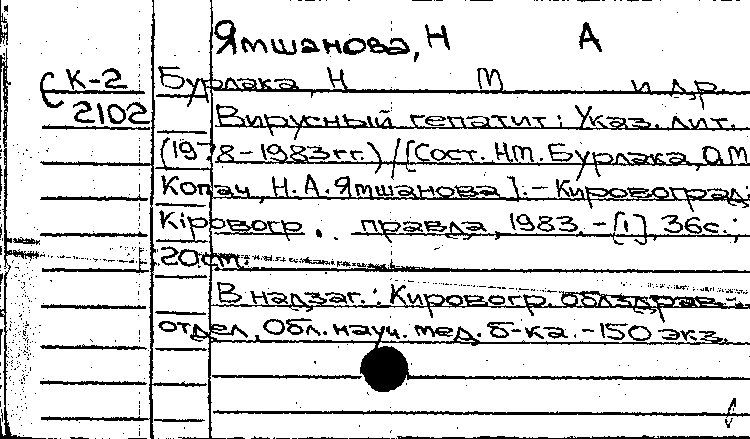 Ямшанова, Н А
К-2 Бурлака, Н М и др.
2102 Вирусный гепатит: Указ. лит.
(1978-1983гг.)/[Сост. Н.М. Бурлака, О.М.
Копач, Н.А. Ямшанова].- Кировоград:
Кіровогр. правда, 1983. -[1], 36с.;
20см.
В надзаг.: Кировогр. облздрав-
отдел, Обл. науч. мед. б-ка. -150 экз.